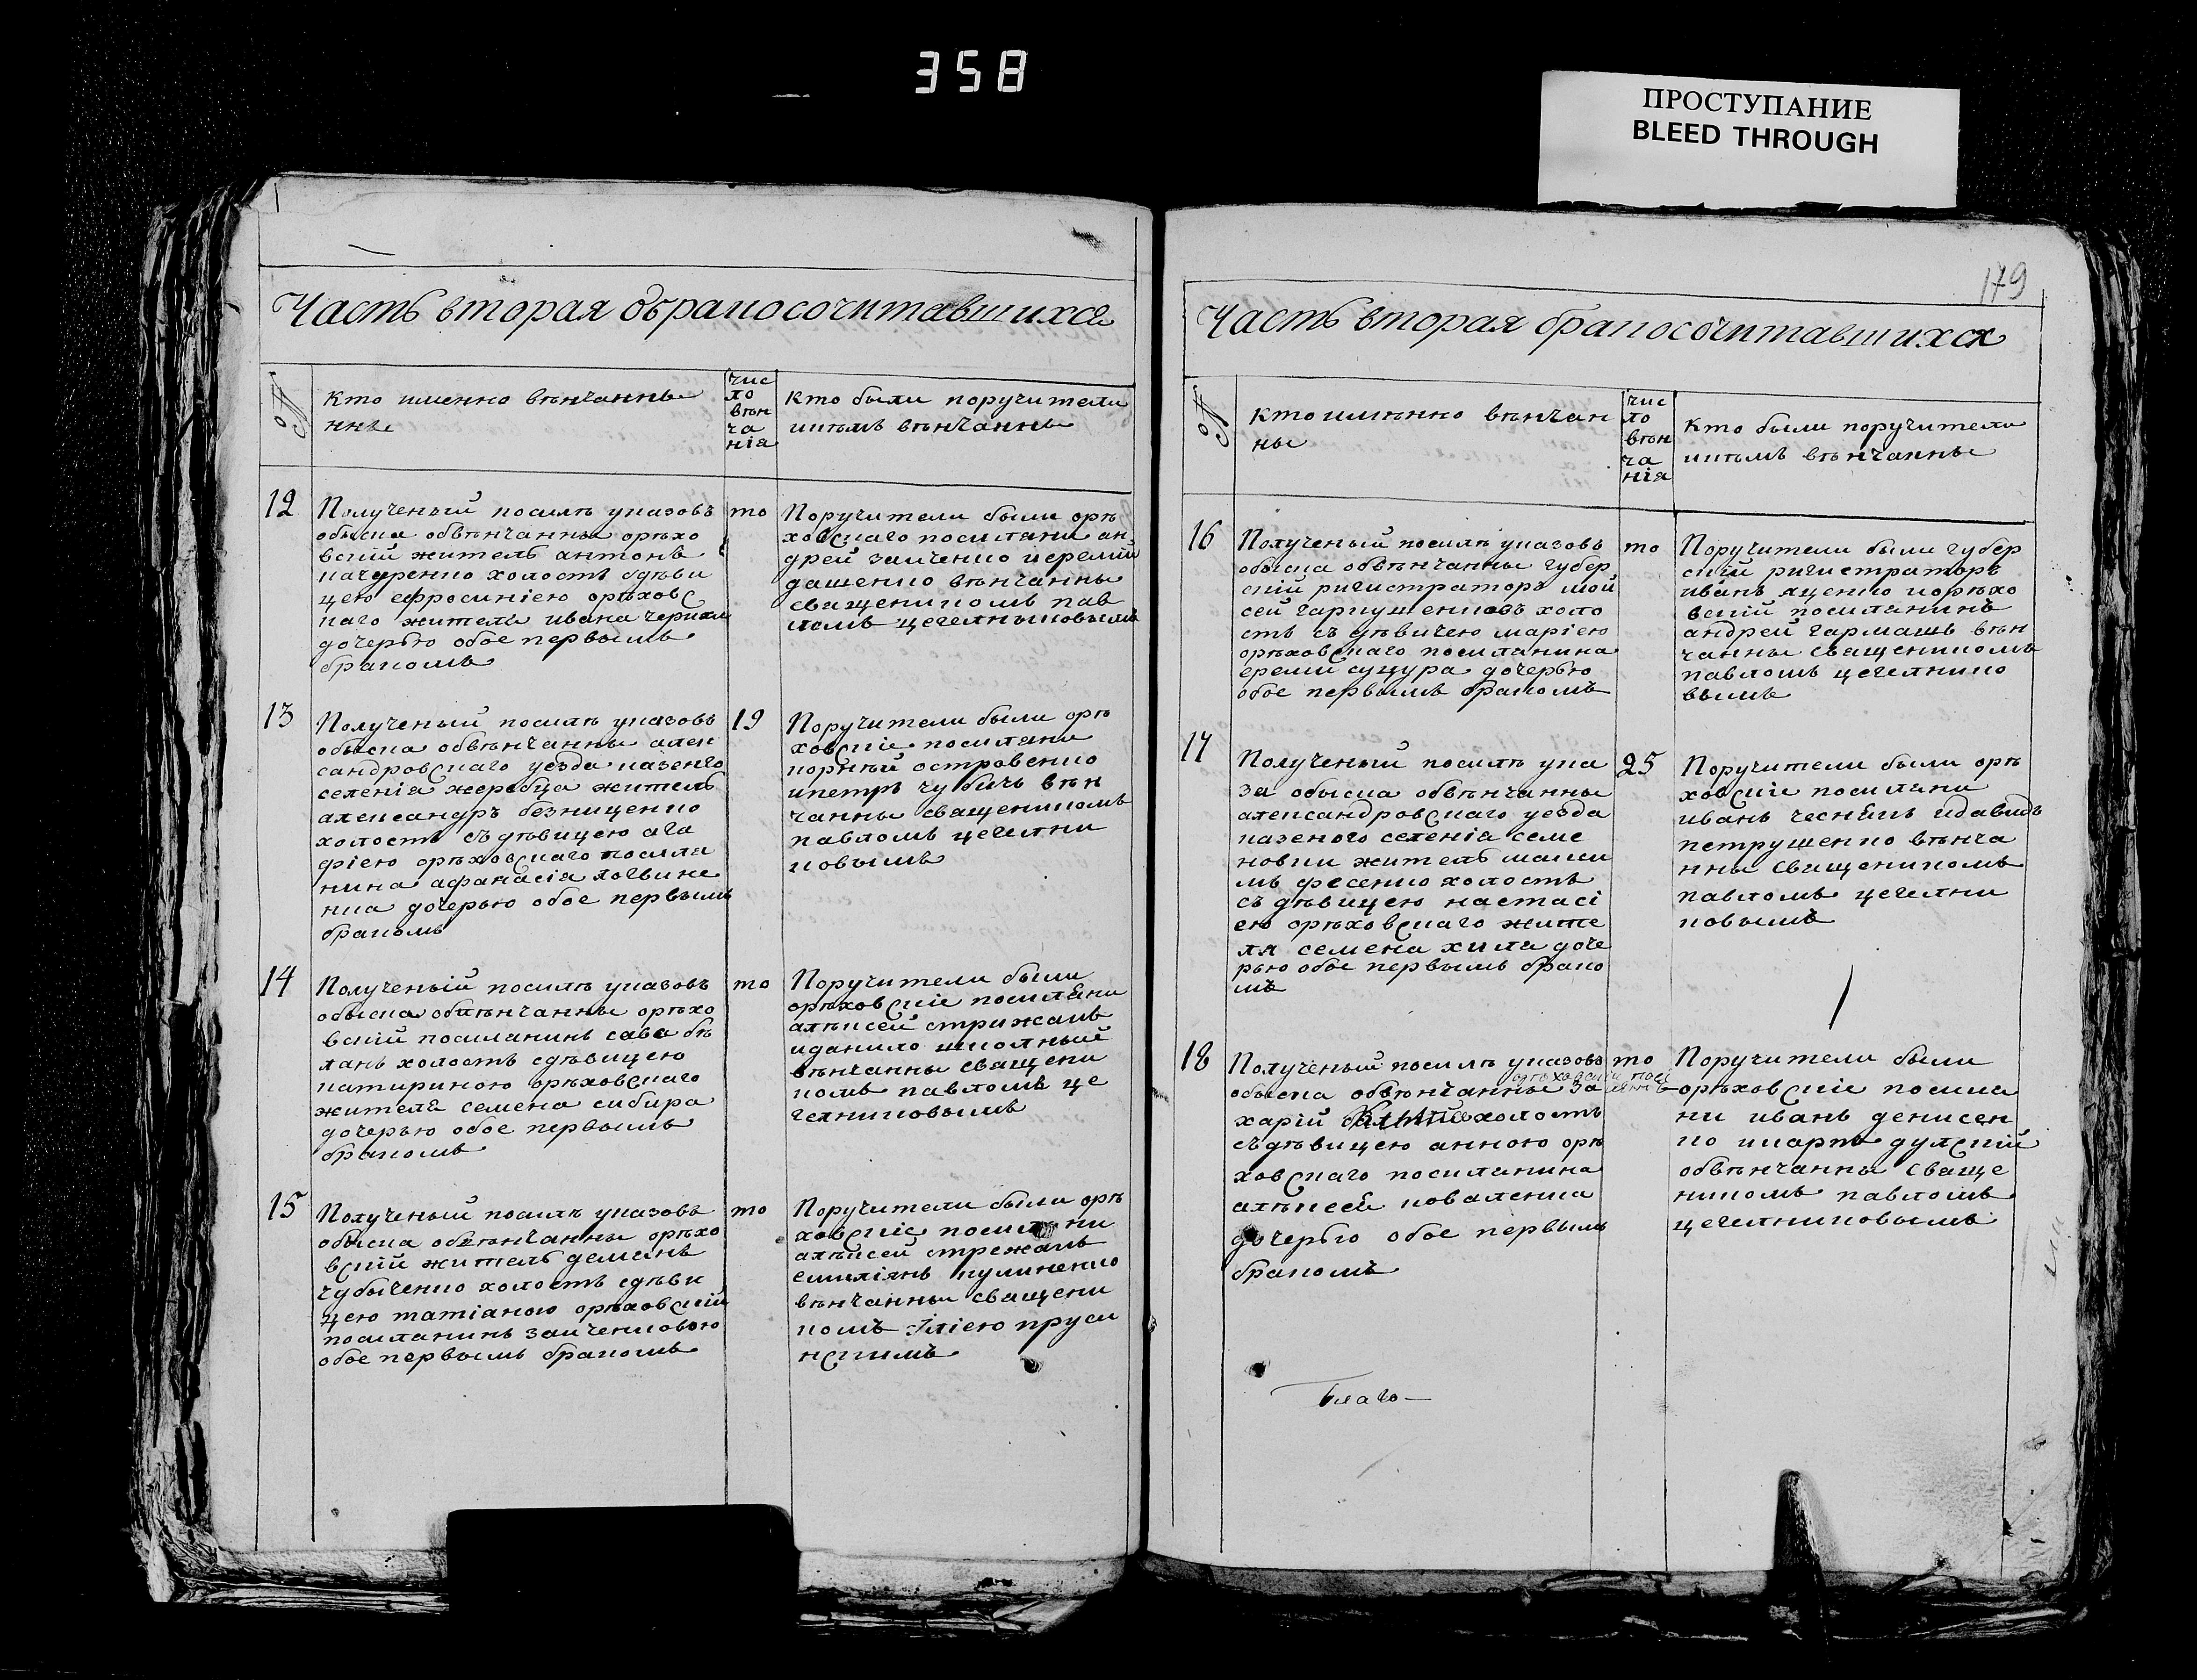 358
ПРОСТУПАНИЕ
BLEED THROUGH
Часть вторая обракосочитавшихся
№
Кто именно вѣнчанны
нны
чис
ло
вѣн
ча
нія
Кто были поручители
икѣмъ вѣнчанны
12
Полученый посилѣ указовъ
обыска обвѣнчанны орѣхо
вскій житель антонъ
холостъ сдѣви
цею ефросиніею орѣховс
каго жителя ивана
дочерью обое первымъ
бракомъ
то
Поручители были орѣ
ховскаго посиляни ан
дрей заиченко иеремій
дашенко вѣнчанны
священикомъ пав
ломъ цегелниковымъ
13
Полученый посилѣ указовъ
обыска обвѣнчанны алек
сандровскаго уезда казенго
селенія жеребца житель
александръ безкищенко
холостъ съ дѣвицею ага
фіею орѣховскаго посиля
нина афанасія логвине
нка дочерью обое первымъ
бракомъ
19
Поручители были орѣ
ховскіе посиляни
корнѣй островенко
ипетръ чубичъ вѣн
чанны священикомъ
павломъ цегелни
ковымъ
14
Полученый посилѣ указовъ
обыска обвѣнчанны орѣхо
вскій посилянинъ сава бѣ
лянъ холостъ сдѣвицею
катириною орѣховскаго
жителя семена сибира
дочерью обое первымъ
бракомъ
то
Поручители были
орѣховскіе посиляни
алѣксей стрижакъ
иданило школный
вѣнчанны священи
комъ павломъ це
гелниковымъ
15
Полученый посилѣ указовъ
обыска обвѣнчанны орѣхо
вскій житель деменъ
чубыченко холостъ сдѣви
цею татіаною орѣховскій
посилянинъ заиченковою
обое первымъ бракомъ
то
Поручители были орѣ
ховскіе посиляни
алѣксей стрежакъ
емиліянъ кулиненко
вѣнчанны священи
комъ Іліею пруси
нскимъ
179
Часть вторая бракосочитавшихся
№
кто имѣнно вѣнчан
ны
чис
ло
вѣн
ча
нія
Кто были поручители
икѣмъ вѣнчанны
16
Полученый посилѣ указовъ
обыска обвѣнчанны губер
скій ригистраторъ мой
сей гаркушенковъ холо
стъ съ дѣвичею маріею
орѣховскаго посилянина
ереми сущура дочерью
обое первымъ бракомъ
то
Поручители были губер
скій ригистраторъ
иванъ яценко иорѣхо
вскій посилянинъ
андрей гармашъ вѣн
чанны священикомъ
павломъ цегелнико
вымъ
17
Полученый посилѣ ука
за обыска обвѣнчанны
александровскаго уезда
казеного селенія семе
новки житель макси
мъ фесенко холостъ
съ дѣвицею настасі
ею орѣховскаго жите
ля семена хила доче
рью обое первымъ брако
мъ
25
Поручители были орѣ
ховскіе посиляни
иванъ чеснокъ идавидъ
петрушенко вѣнча
нны священикомъ
павломъ цегелни
ковымъ
18
Полученый посилѣ указовъ
обыска обвѣнчанны за
харій холостъ
съ дѣвицею анною орѣ
ховскаго посилянина
алѣксея коваленка
дочерью обое первымъ
бракомъ
то
Поручители были
орѣховскіе посиля
ни иванъ денисен
ко икарпъ дулскій
обвѣнчанны свяще
никомъ павломъ
цегелниковымъ
благо-